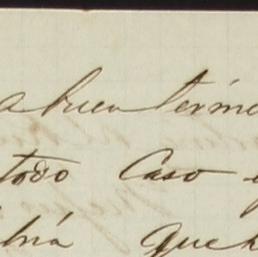 a buen térmi
todo Caso
que